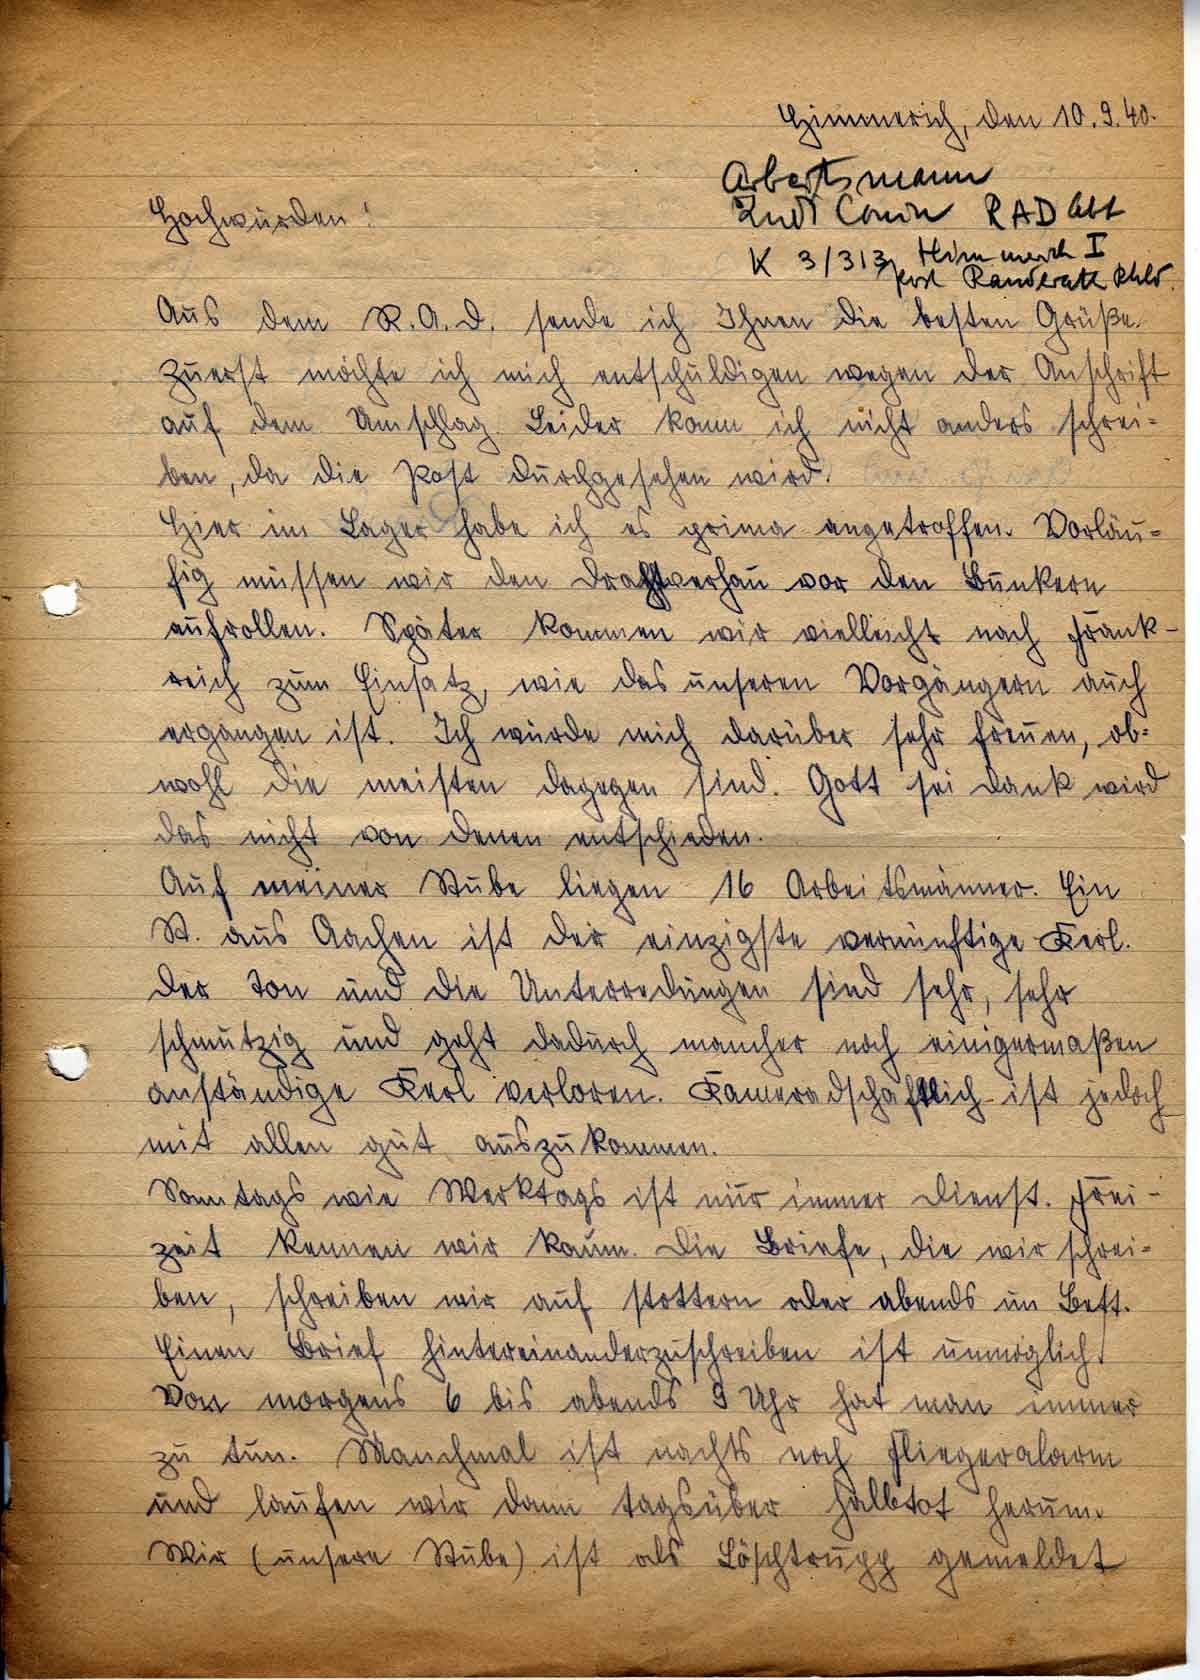 Himmerich, den 10.9.40.
Arbeitsmann
RAD Abt
K 3/313 Himmerich I
Post Randerath Rhld.
Hochwürden!
Aus dem R.A.D. sende ich Ihnen die besten Grüße.
Zuerst möchte ich mich entschuldigen wegen der Anschrift
auf dem Umschlag. Leider kann ich nicht anders schrei=
ben, da die Post durchgesehen wird.
Hier im Lager habe ich es prima angetroffen. Vorläu=
fig müssen wir den Drahtverhau vor den Bunkern
aufrollen. Später kommen wir vielleicht nach Frank-
reich zum Einsatz, wie das unseren Vorgängern auch
ergangen ist. Ich würde mich darüber sehr freuen, ob=
wohl die meisten dagegen sind. Gott sei dank wird
das nicht von denen entschieden.
Auf meiner Stube liegen 16 Arbeitsmänner. Ein
St. aus Aachen ist der einzigste vernünftige Kerl.
Der Ton und die Unterredungen sind sehr, sehr
schmutzig und geht dadurch mancher noch einigermaßen
anständige Kerl verloren. Kameradschaftlich ist jedoch
mit allen gut auszukommen.
Sonntags wie Werktags ist nur immer Dienst. Frei-
zeit kennen wir kaum. Die Briefe, die wir schrei=
ben, schreiben wir auf stottern oder abends im Bett.
Einen Brief hintereinanderzuschreiben ist unmöglich.
Von morgens 6 bis abends 9 Uhr hat man immer
zu tun. Manchmal ist nachts noch Fliegeralarm
und laufen wir dann tagsüber halbtot herum.
Wir (unsere Stube) ist als Löschtrupp gemeldet